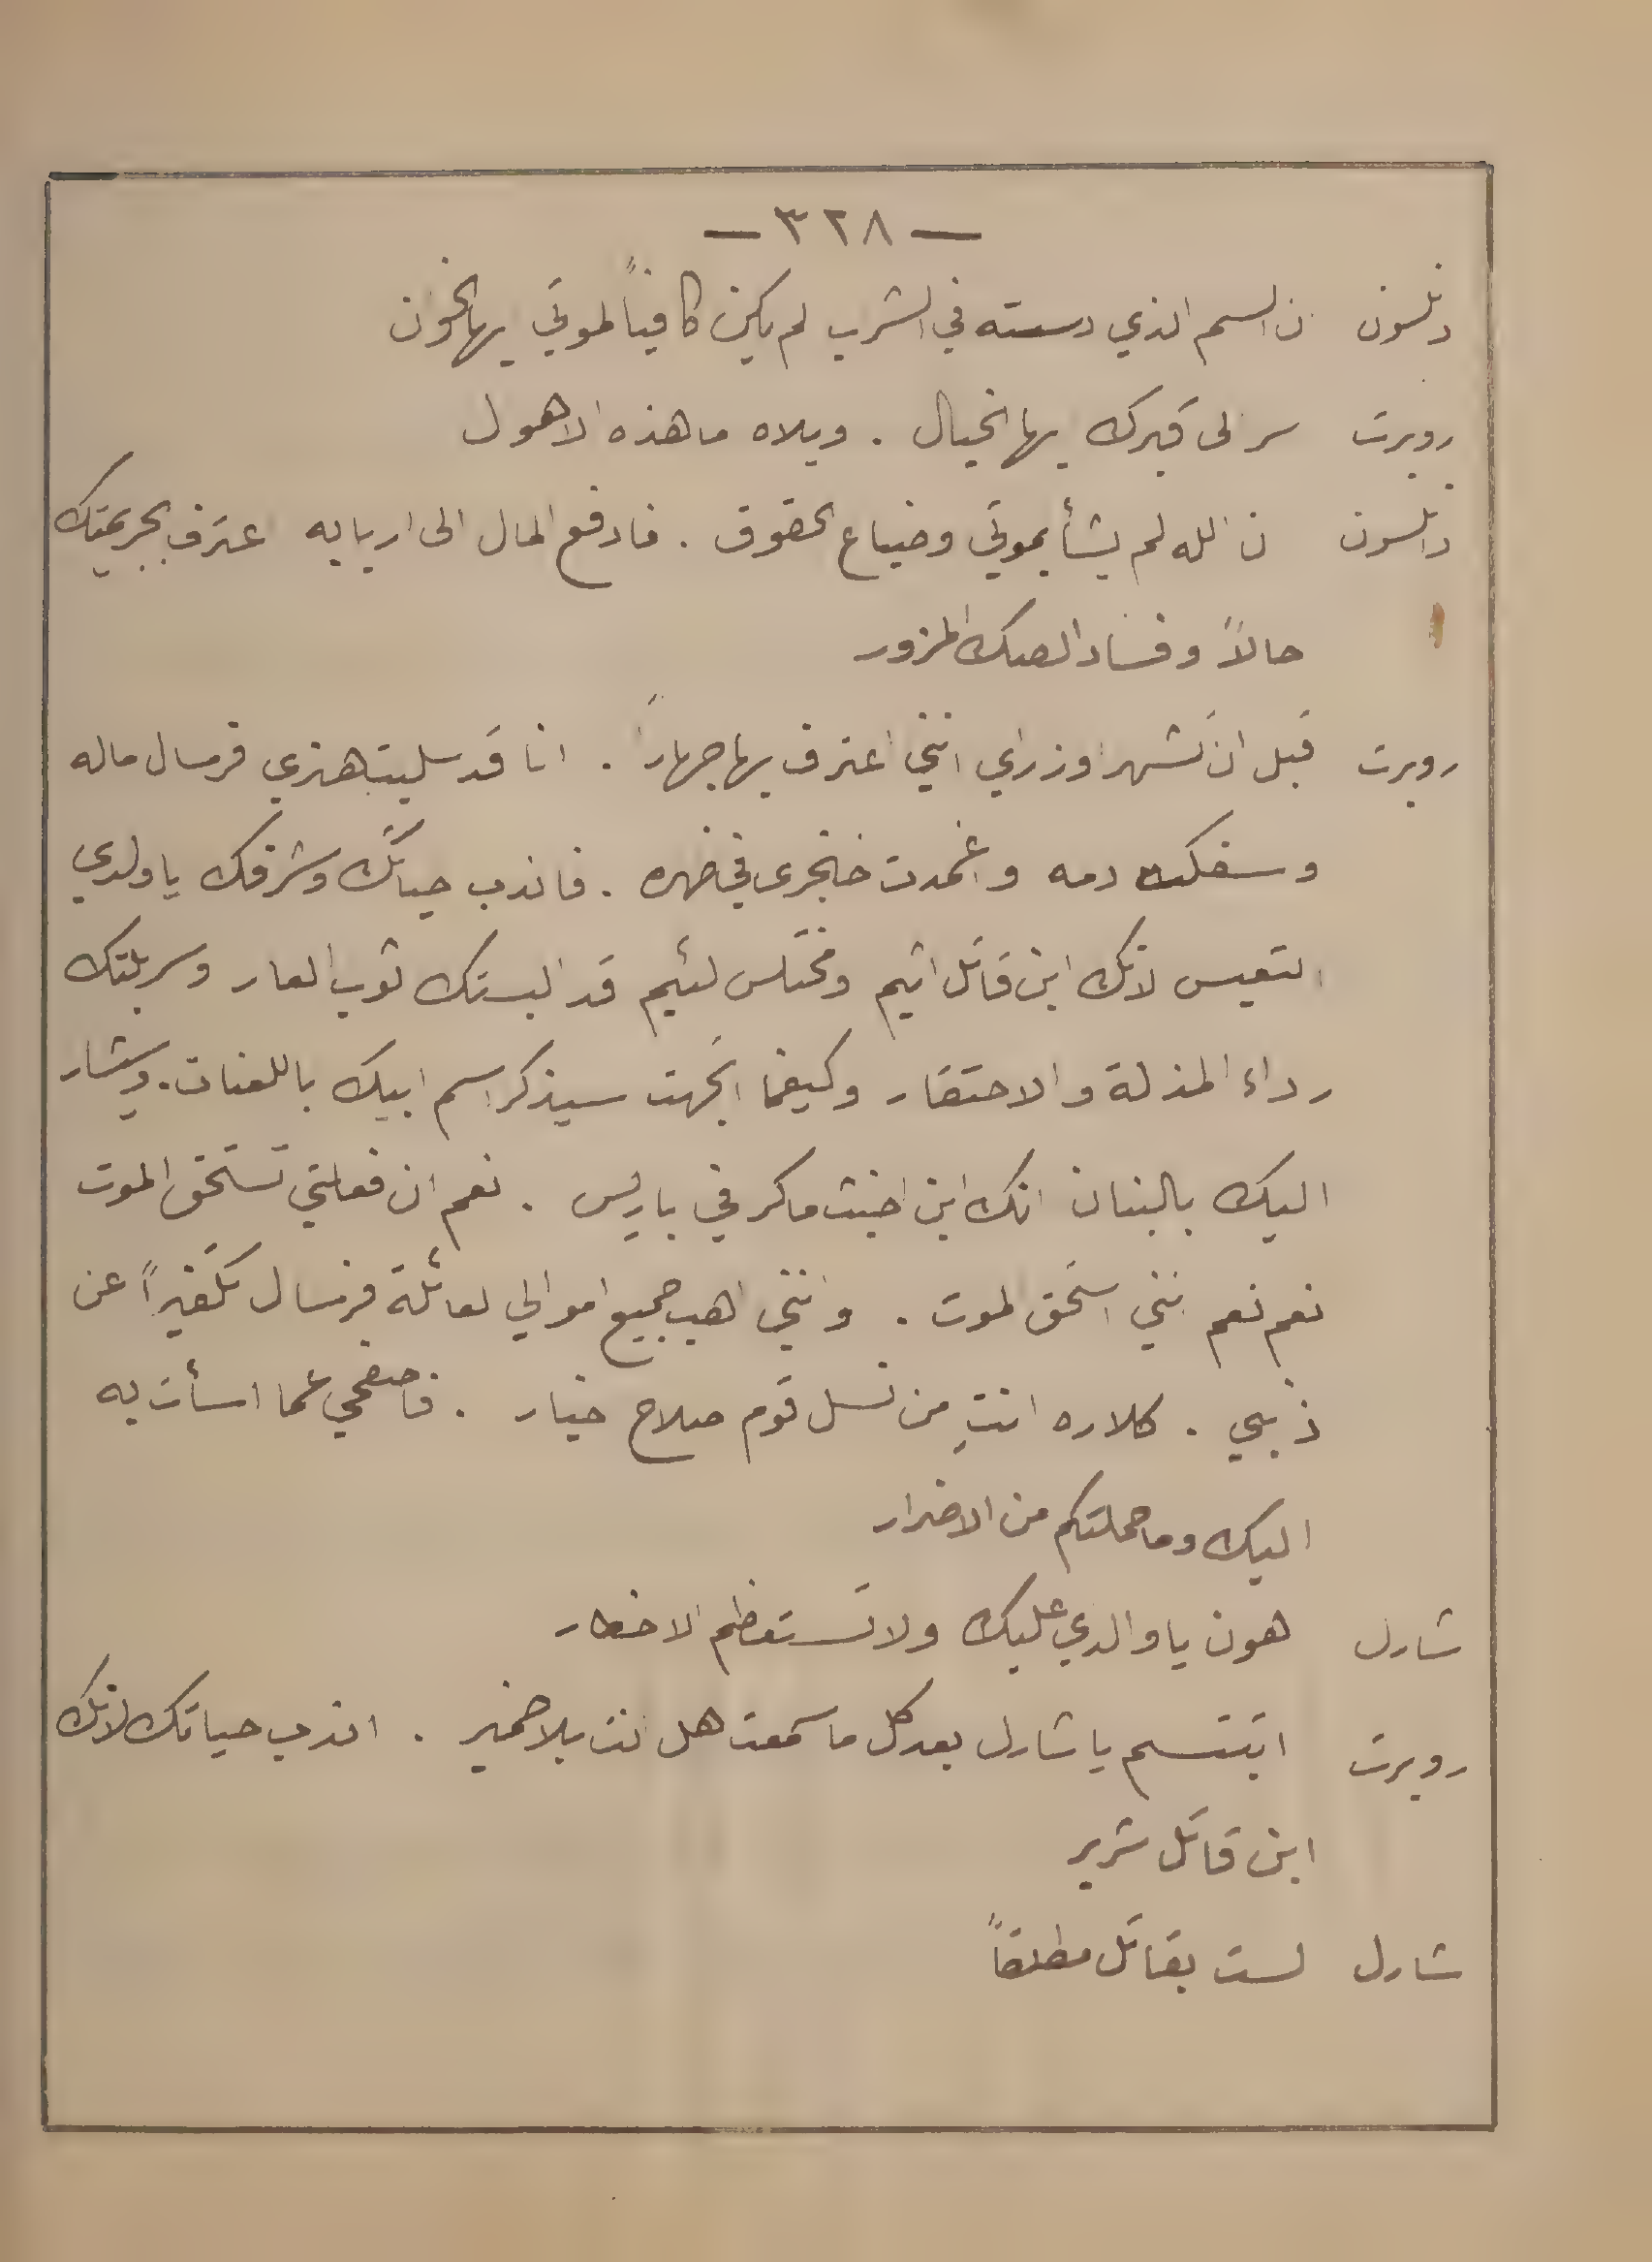 — ٣٢٨ —
دالسون ان السم الذي دسسته في الشراب لم يكن كافياً لموتي ايها الخون
روبرت سر الى قبرك ايها الخيال . ويلاه ما هذه الاهوال
دالسون ان الله لم يشأ بموتي وضياع الحقوق . فادفع المال الى اربابه اعترف بجريمتك
حالاً وفساد الصك المزور
روبرت قبل ان تشهرا وزراي انني اعترف بها جهاراً . انا قد سلبت هنري فرسال ماله
وسفكت دمه واغمدت خنجري في ظهره . فاندب حياتك وشرفك يا ولدي
التعيس لانك ابن قاتل اثيم ومختلس لئيم قد البستك ثوب العار وسربلتك
رداء المذلة والاحتقار وكيفما اتجهت سيذكر اسم ابيك باللعنات . ويشار
اليك بالبنان انك ابن اخبث ماكر في باريس . نعم ان فعلتي تستحق الموت
نعم نعم انني استحق الموت . وانني اهب جميع اموالي لعائلة فرسال تكفيراً عن
ذنبي . كلاره انتِ من نسل قوم صلاح خيار . فاصفحي عما اسأت به
اليك وما حملتكم من الاضرار
شارل هون يا والدي عليك ولا تستعظم الاخطار
روبرت اتبتسم يا شارل بعد كل ما سمعت هل انت بلا ضمير . اندب حياتك لانك
ابن قاتل شرير
شارل لست بقاتل مطلقاً